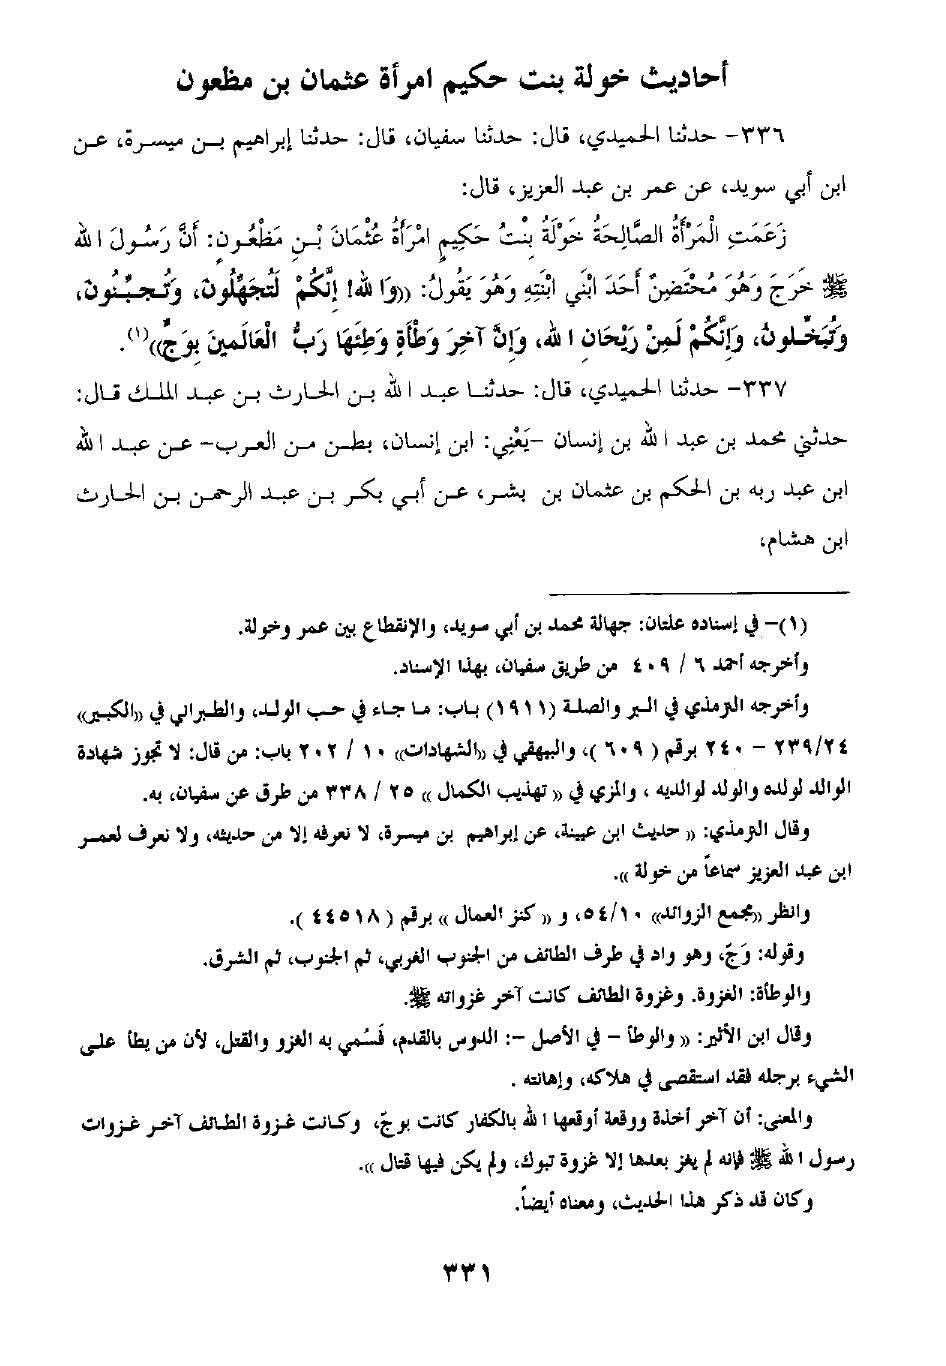 أحاديث خولة بنت حكيم امرأة عثمان بن مظعون
٣٣٦- حدثنا الحميدي، قال: حدثنا سفيان، قال: حدثنا إبراهيم بن ميسرة، عن
ابن أبي سويد، عن عمر بن عبد العزيز، قال:
زَعَمَتِ الْمَرْأَةُ الصَّالِحَةُ خَوْلَةُ بِنْتُ حَكِيمٍ امْرَأَةُ عُثْمَانَ بْنِ مَظْعُونٍ: أَنَّ رَسُولَ الله
ﷺ خَرَجَ وَهُوَ مُحْتَضِنٌ أَحَدَ ابْنَيِ ابْنَتِهِ وَهُوَ يَقُولُ: ((وَالله! إِنَّكُمْ لَتُجَهِّلُونَ، وَتُجَبِّنُونَ،
وَتُبَخِّلونُ، وَإِنَّكُمْ لَمِنْ رَيْحَانِ الله، وَإِنَّ آخِرَ وَطْأَةٍ وَطِئَهَا رَبُّ الْعَالَمِينَ بِوَجٍّ))(١).
٣٣٧- حدثنا الحميدي، قال: حدثنا عبد الله بن الحارث بن عبد الملك قال:
حدثني محمد بن عبد الله بن إنسان -يَعْنِي: ابن إنسان، بطن من العرب- عن عبد الله
ابن عبد ربه بن الحكم بن عثمان بن بشر، عن أبي بكر بن عبد الرحمن بن الحارث
ابن هشام،
(١)- في إسناده علتان: جهالة محمد بن أبي سويد، والإنقطاع بين عمر وخولة.
وأخرجه أحمد ٦ / ٤٠٩ من طريق سفيان، بهذا الإسناد.
وأخرجه الترمذي في البر والصلة (١٩١١) باب: ما جاء في حب الولد، والطبراني في ((الكبير))
٢٣٩/٢٤ – ٢٤٠ برقم ( ٦٠٩ )، والبيهقي في ((الشهادات)) ١٠ / ٢٠٢ باب: من قال: لا تجوز شهادة
الوالد لولده والولد لوالديه ، والمزي في (( تهذيب الكمال )) ٢٥ / ٣٣٨ من طرق عن سفيان، به.
وقال الترمذي: (( حديث ابن عيينة، عن إبراهيم بن ميسرة، لا نعرفه إلا من حديثه، ولا نعرف لعمر
ابن عبد العزيز سماعاً من خولة )).
وانظر ((مجمع الزوائد)) ٥٤/١٠، و (( كنز العمال )) برقم ( ٤٤٥١٨ ).
وقوله: وَجّ، وهو واد في طرف الطائف من الجنوب الغربي، ثم الجنوب، ثم الشرق.
والوطأة: الغزوة. وغزوة الطائف كانت آخر غزواته ﷺ.
وقال ابن الأثير: (( والوطأ – في الأصل –: الدوس بالقدم، فَسُمي به الغزو والقتل، لأن من يطأ على
الشيء برجله فقد استقصى في هلاكه، وإهانته .
والمعنى: أن آخر أخذة ووقعة أوقعها الله بالكفار كانت بوجّ، وكانت غزوة الطائف آخر غزوات
رسول الله ﷺ فإنه لم يغز بعدها إلا غزوة تبوك، ولم يكن فيها قتال )).
وكان قد ذكر هذا الحديث، ومعناه أيضاً.
٣٣١